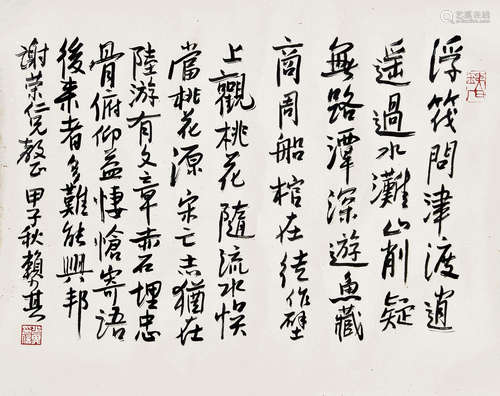 浮筏問津渡逍
遥過水灘山削疑
無路潭深遊魚藏
商周船棺在徒作壁
上觀桃花隨流水悮
當桃花源宋亡志猶在
陸游有文章赤石埋忠
骨俯仰益悽愴寄語
後来者多難能興邦
謝荣仁兄教正 甲子秋賴少其